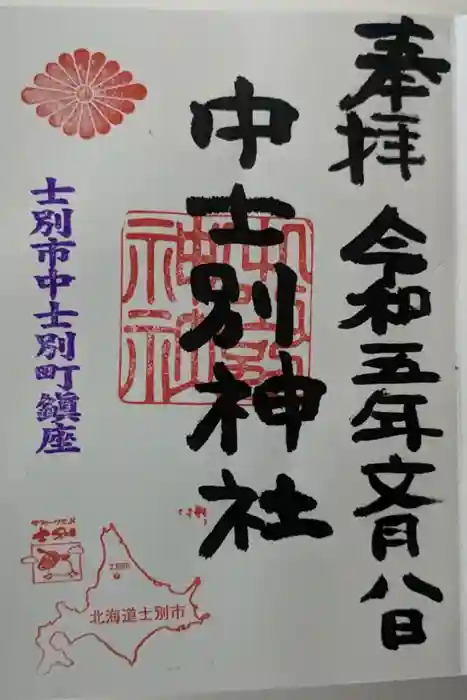 奉拝 令和五年文月八日
中士別神社
士別市中士別町鎮座
北海道士別市